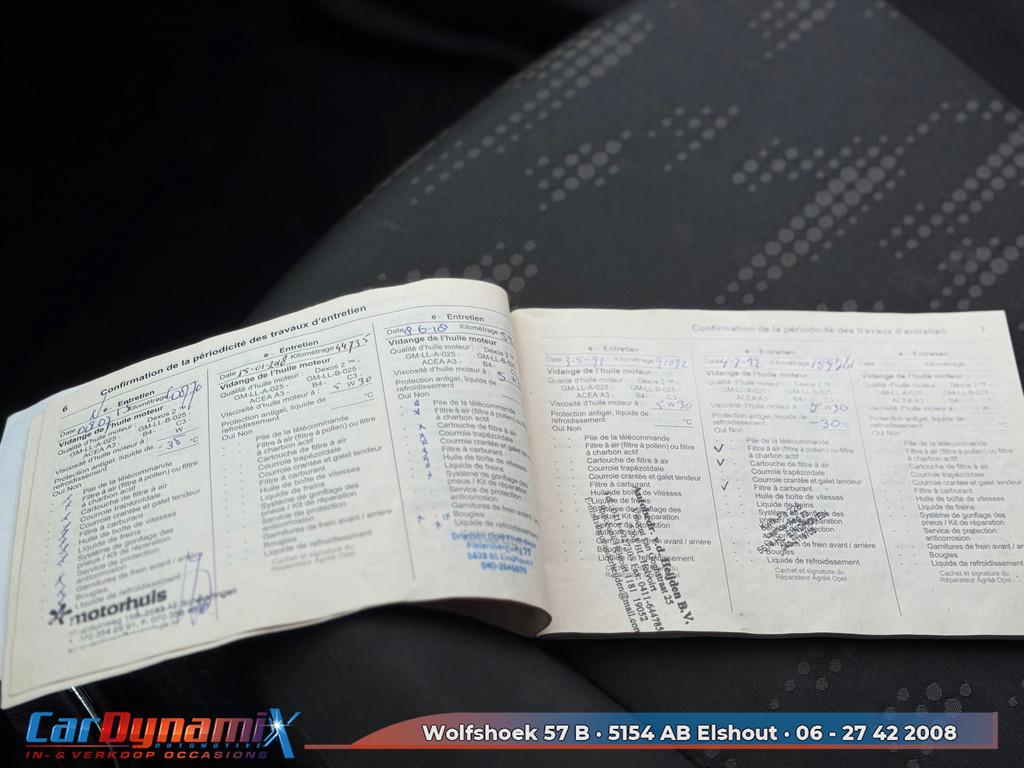 6 Confirmation de la périodicité des travaux d'entretien
e - Entretien
Date Kilométrage
Vidange de l'huile moteur
Qualité d'huile moteur : Dexos 2 ™ -
GM-LL-A-025 - GM-LL-B-025 -
ACEA A3 - B4 - C3 -
Viscosité d'huile moteur à : W
Protection antigel, liquide de refroidissement - 38 °C
Oui Non
Pile de la télécommande
Filtre à air (filtre à pollen) ou filtre
à charbon actif
Cartouche de filtre à air
Courroie trapézoïdale
Courroie crantée et galet tendeur
Filtre à carburant
Huile de boîte de vitesses
Liquide de freins
Système de gonflage des
pneus / Kit de réparation
Service de protection
anticorrosion
Garnitures de frein avant / arrière
Bougies
Liquide de refroidissement
motorhuis
e - Entretien
Date 15-01-2018 Kilométrage 44735
Vidange de l'huile moteur
Qualité d'huile moteur : Dexos 2 ™ -
GM-LL-A-025 - GM-LL-B-025 -
ACEA A3 - B4 - C3 -
Viscosité d'huile moteur à : 5 W 30
Protection antigel, liquide de
refroidissement °C
Oui Non
Pile de la télécommande
Filtre à air (filtre à pollen) ou filtre
à charbon actif
Cartouche de filtre à air
Courroie trapézoïdale
Courroie crantée et galet tendeur
Filtre à carburant
Huile de boîte de vitesses
Liquide de freins
Système de gonflage des
pneus / Kit de réparation
Service de protection
anticorrosion
Garnitures de frein avant / arrière
Bougies
Liquide de refroidissement
Cachet et signature du
Réparateur Agréé Opel
e - Entretien
Date 8-6-18 Kilométrage
Vidange de l'huile moteur
Qualité d'huile moteur : Dexos 2
GM-LL-A-025 - GM-LL-B-025
ACEA A3 - B4 - C3
Viscosité d'huile moteur à : 5 W
Protection antigel, liquide de
refroidissement
Oui Non
Pile de la télécommande
Filtre à air (filtre à pollen)
à charbon actif
Cartouche de filtre à air
Courroie trapézoïdale
Courroie crantée et galet
Filtre à carburant
Huile de boîte de vitesses
Liquide de freins
Système de gonflage des
pneus / Kit de réparation
Service de protection
anticorrosion
Garnitures de frein avant
Bougies
Liquide de refroidissement
Confirmation de la périodicité des travaux d'entretien 7
e - Entretien
Date Kilométrage 91032
Vidange de l'huile moteur
Qualité d'huile moteur : Dexos 2 ™ -
GM-LL-A-025 - GM-LL-B-025 -
ACEA A3 - B4 - C3 -
Viscosité d'huile moteur à : 5 W 30
Protection antigel, liquide de
refroidissement °C
Oui Non
Pile de la télécommande
Filtre à air (filtre à pollen) ou filtre
à charbon actif
Cartouche de filtre à air
Courroie trapézoïdale
Courroie crantée et galet tendeur
Filtre à carburant
Huile de boîte de vitesses
Liquide de freins
Système de gonflage des
pneus / Kit de réparation
Service de protection
anticorrosion
Garnitures de frein avant / arrière
Bougies
Liquide de refroidissement
Heijden B.V.
e - Entretien
Date Kilométrage
Vidange de l'huile moteur
Qualité d'huile moteur : Dexos 2 ™ -
GM-LL-A-025 - GM-LL-B-025 -
ACEA A3 - B4 - C3 -
Viscosité d'huile moteur à : 5 W 30
Protection antigel, liquide de
refroidissement -30 °C
Oui Non
Pile de la télécommande
Filtre à air (filtre à pollen) ou filtre
à charbon actif
Cartouche de filtre à air
Courroie trapézoïdale
Courroie crantée et galet tendeur
Filtre à carburant
Huile de boîte de vitesses
Liquide de freins
Système de gonflage des
pneus / Kit de réparation
Service de protection
anticorrosion
Garnitures de frein avant / arrière
Bougies
Liquide de refroidissement
Cachet et signature du
Réparateur Agréé Opel
e - Entretien
Date Kilométrage
Vidange de l'huile moteur
Pile de la télécommande
Filtre à air (filtre à pollen)
à charbon actif
Cartouche de filtre à air
Courroie trapézoïdale
Courroie crantée et galet
Filtre à carburant
Huile de boîte de vitesses
Liquide de freins
Système de gonflage des
pneus / Kit de réparation
Service de protection
anticorrosion
Garnitures de frein avant
Bougies
Liquide de refroidissement
Cachet et signature du
Réparateur Agréé Opel
CarDynamiX
AUTOMOTIVE
IN- & VERKOOP OCCASIONS
Wolfshoek 57 B • 5154 AB Elshout • 06 - 27 42 2008